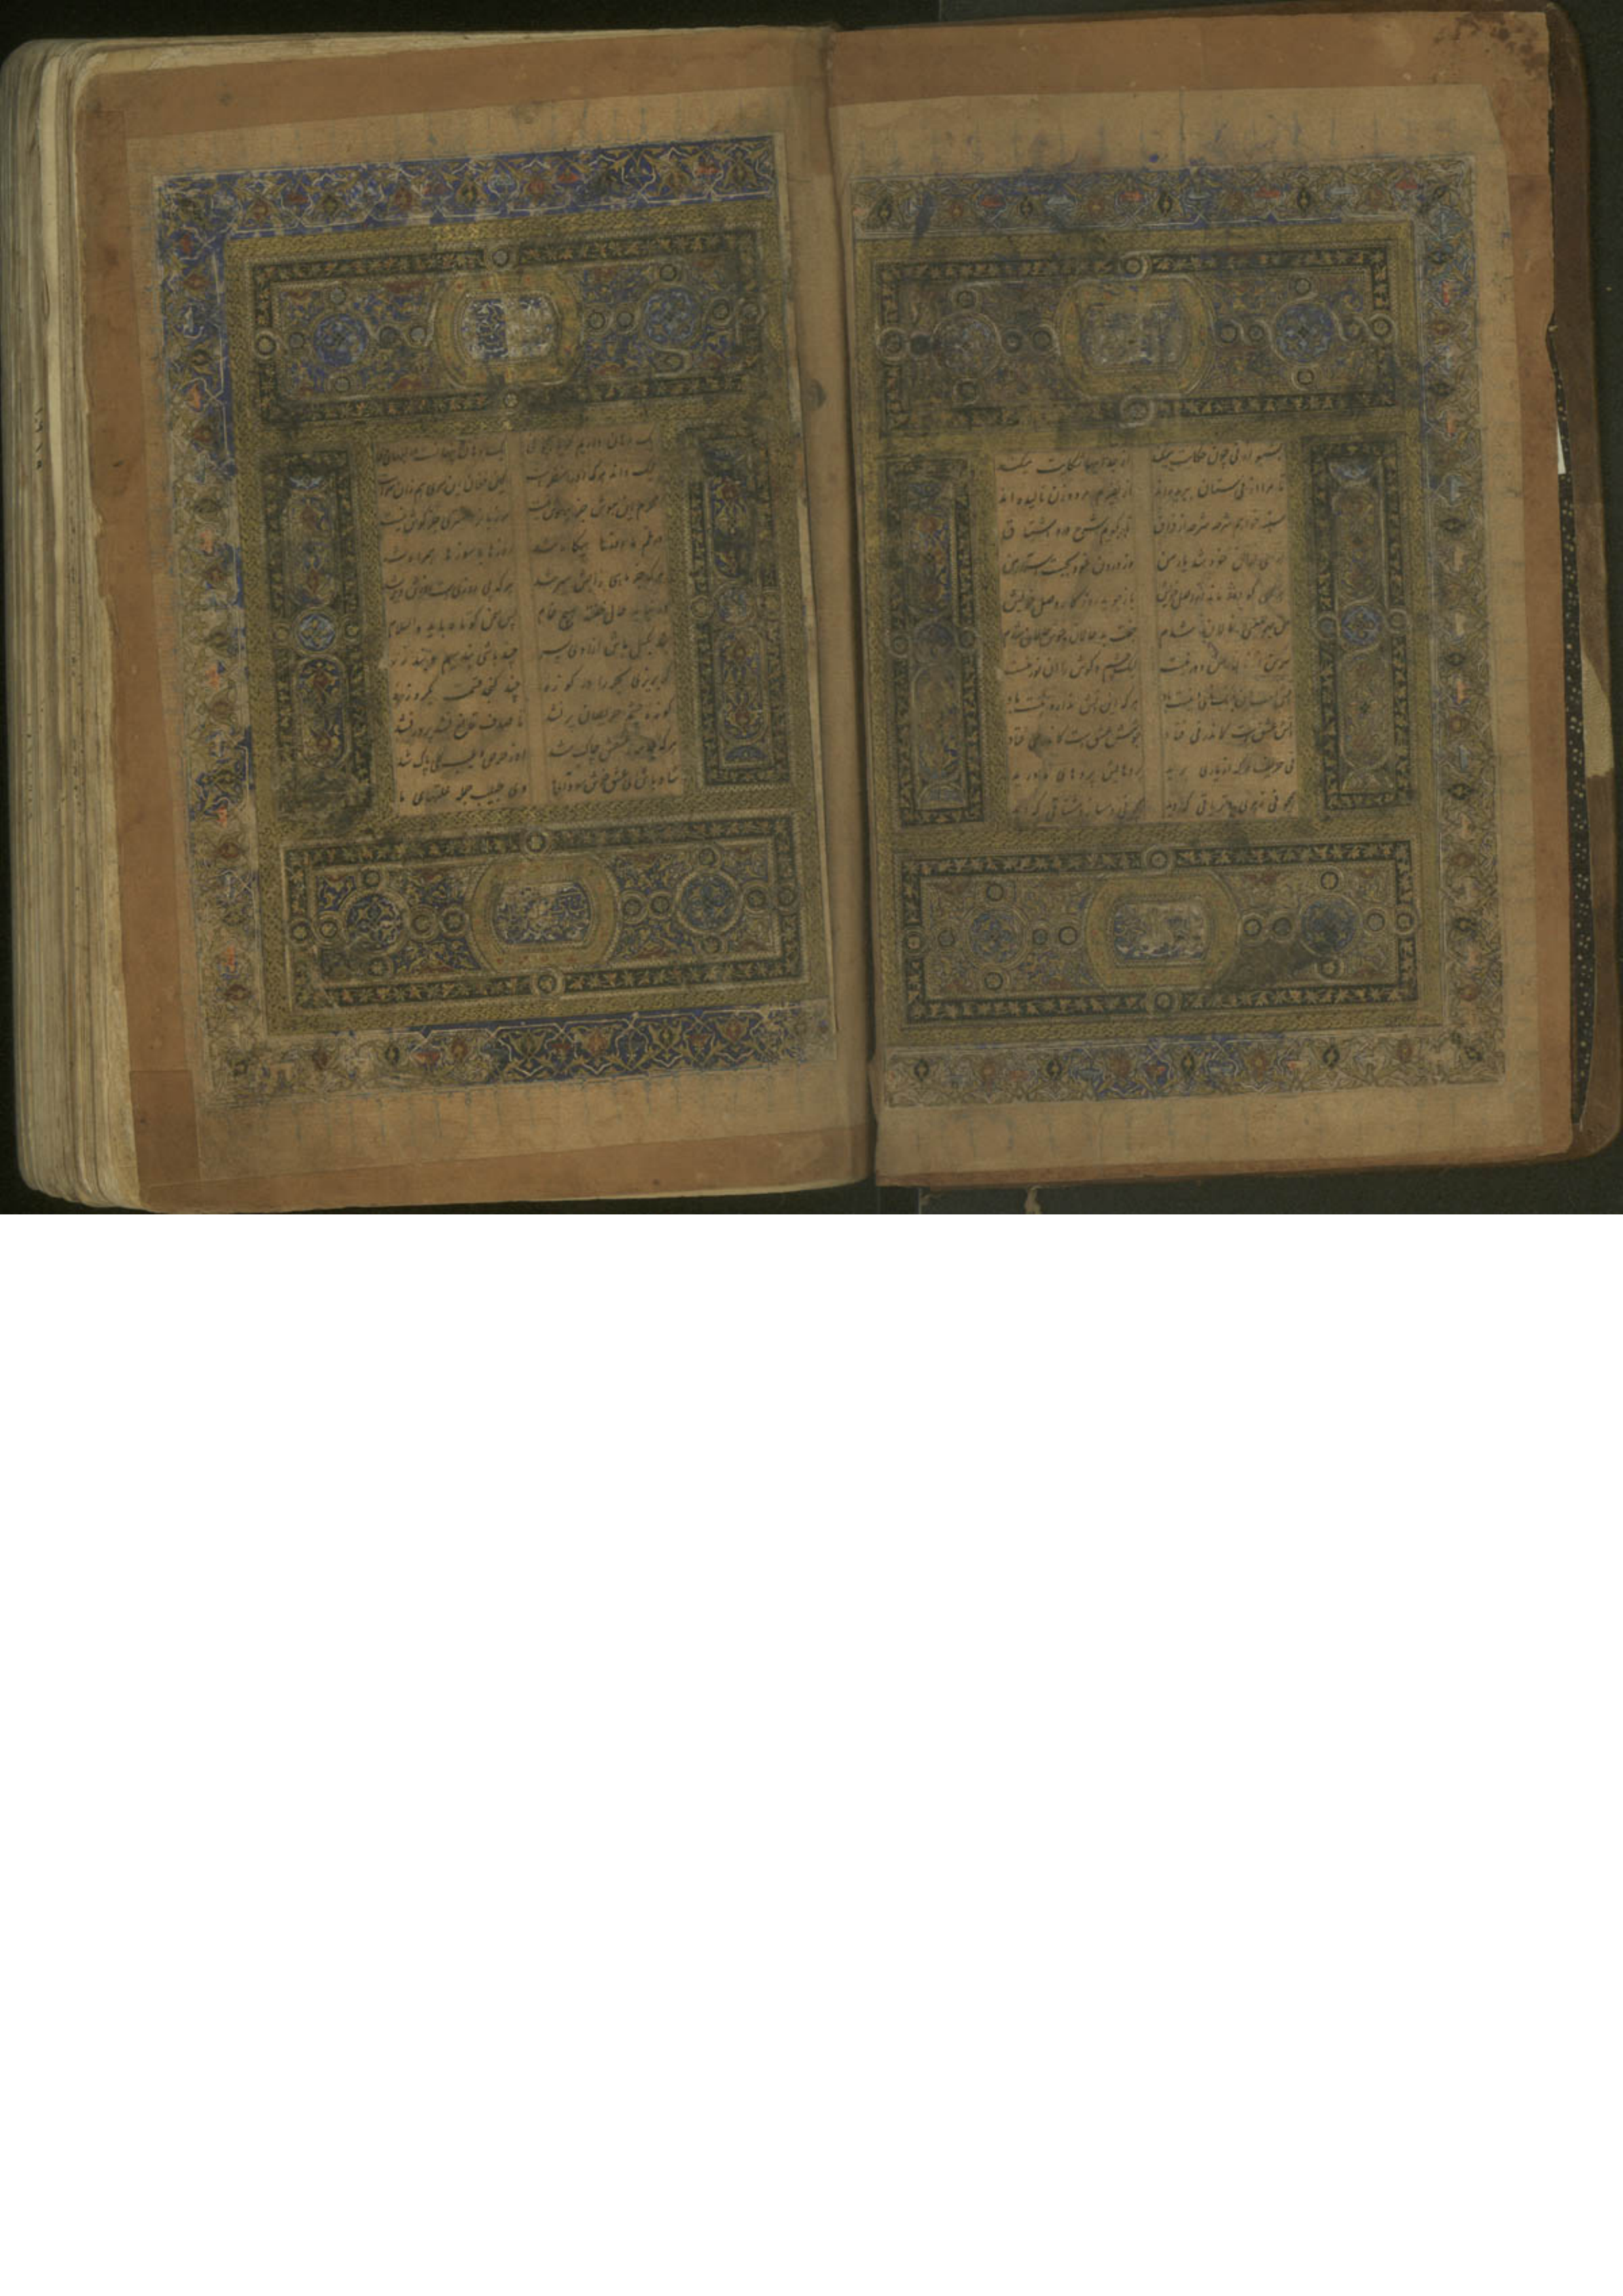 بشنو از نی چون حکایت میکند از جداییها شکایت میکند
تا مرا از نی ستان ببریده اند از نفیرم مرد و زن نالیده اند
سینه خواهم شرحه شرحه از فراق تا بگویم شرح درد اشتیاق
هر کسی از ظن خود شد یار من وز درون اسرار من
هر کسی کو دور ماند از اصل خویش باز جوید روزگار وصل خویش
من نالان شدم جفت بد حالان و خوش حالان شدم
سر من از دور نیست لیک چشم و گوش را آن نور نیست
نیست باد هر که این آتش ندارد نیست باد
آتش عشق است کاندر نی فتاد جوشش عشق است کاندر می فتاد
نی حریف هر که از یاری برید پرده هایش پرده های ما درید
همچو نی زهری و تریاقی که دید همچو نی دمساز و مشتاقی که دید
یک دهان داریم گویا همچو نی یک دهان پنهانست در لبهای وی
لیک داند هر که او را منظرست کین فغان این سری هم زان سرست
محرم این هوش جز بیهوش نیست مر زبان را مشتری جز گوش نیست
در غم ما روزها بیگاه شد روزها با سوزها همراه شد
هر که جز ماهی ز آبش سیر شد هر که بی روزی است روزش دیر شد
در نیابد حال پخته هیچ خام پس سخن کوتاه باید و السلام
بند بگسل باش آزاد ای پسر چند باشی بند سیم و بند زر
گر بریزی بحر را در کوزه چند گنجد قسمت یکروزه
کوزه چشم حریصان پر نشد تا صدف قانع نشد پر در نشد
هر که را جامه ز عشقش چاک شد او ز حرص و عیب کلی پاک شد
شاد باش ای عشق خوش سودای ما وی طبیب جمله علتهای ما